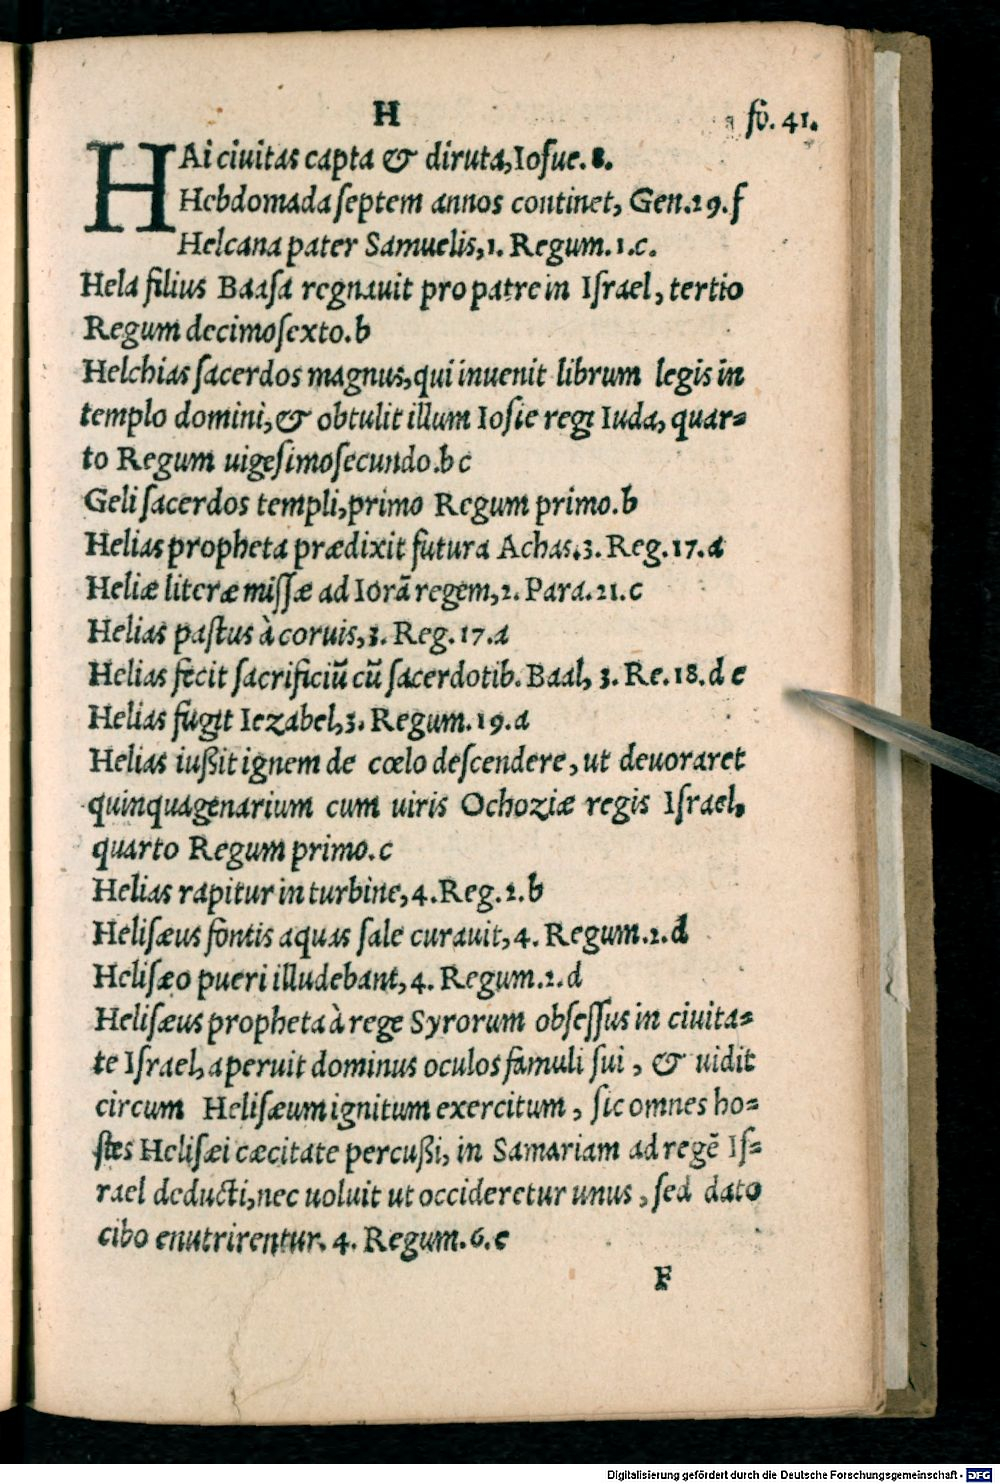 H
fo. 41.
HAi ciuitas capta & diruta, Iosue. 8.
Hebdomada septem annos continet, Gen. 29. f
Helcana pater Samuelis, 1. Regum. 1. c.
Hela filius Baasa regnauit pro patre in Israel, tertio
Regum decimosexto. b
Helchias sacerdos magnus, qui inuenit librum legis in
templo domini, & obtulit illum Iosie regi Iuda, quar=
to Regum uigesimosecundo. b c
Geli sacerdos templi, primo Regum primo. b
Helias propheta prædixit futura Achas. 3. Reg. 17. a
Heliæ literæ missæ ad Iorã regem, 2. Para. 21. c
Helias pastus à coruis, 3. Reg. 17. a
Helias fecit sacrificiũ cũ sacerdotib. Baal, 3. Re. 18. d e
Helias fugit Iezabel, 3. Regum. 19. a
Helias iußit ignem de cœlo descendere, ut deuoraret
quinquagenarium cum uiris Ochoziæ regis Israel,
quarto Regum primo. c
Helias rapitur in turbine, 4. Reg. 2. b
Helisæus fontis aquas sale curauit, 4. Regum. 2. d
Helisæo pueri illudebant, 4. Regum. 2. d
Helisæus propheta à rege Syrorum obsessus in ciuita=
te Israel, aperuit dominus oculos famuli sui, & uidit
circum Helisæum ignitum exercitum, sic omnes ho=
stes Helisæi cæcitate percußi, in Samariam ad regẽ Is=
rael deducti, nec uoluit ut occideretur unus, sed dato
cibo enutrirentur. 4. Regum. 6. c
F
Digitalisierung gefördert durch die Deutsche Forschungsgemeinschaft - DFG